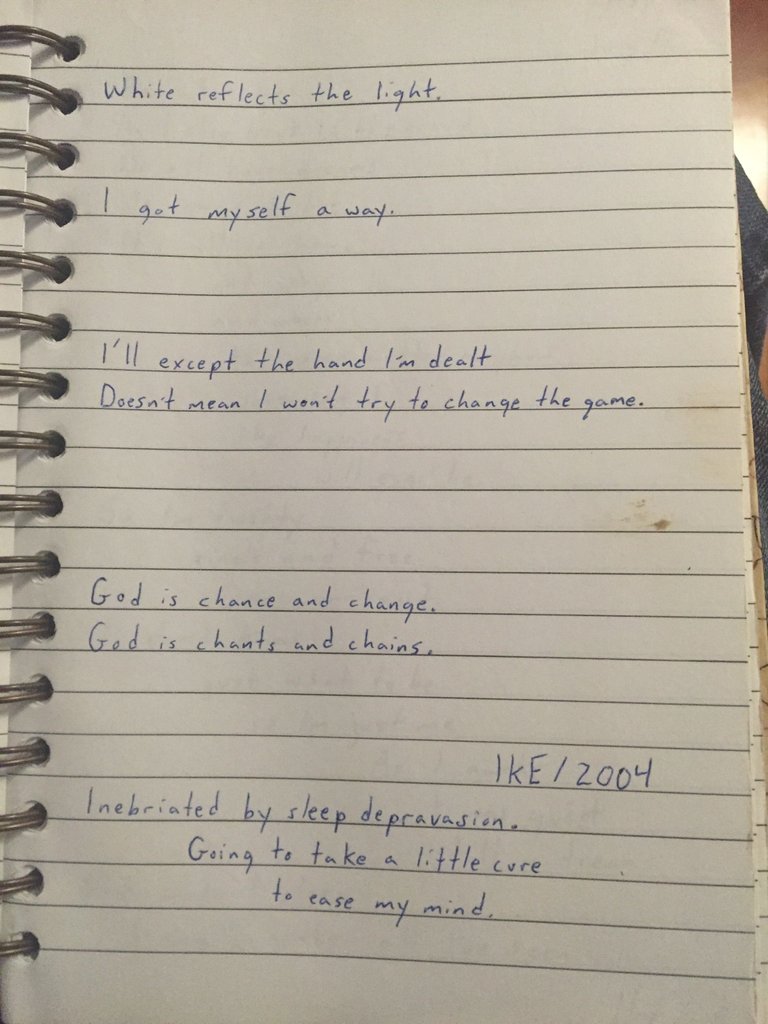 White reflects the light.
I got myself a way.
I'll except the hand I'm dealt
Doesn't mean I won't try to change the game.
God is chance and change.
God is chants and chains.
IKE/2004
Inebriated by sleep depravasion.
Going to take a little cure
to ease my mind.